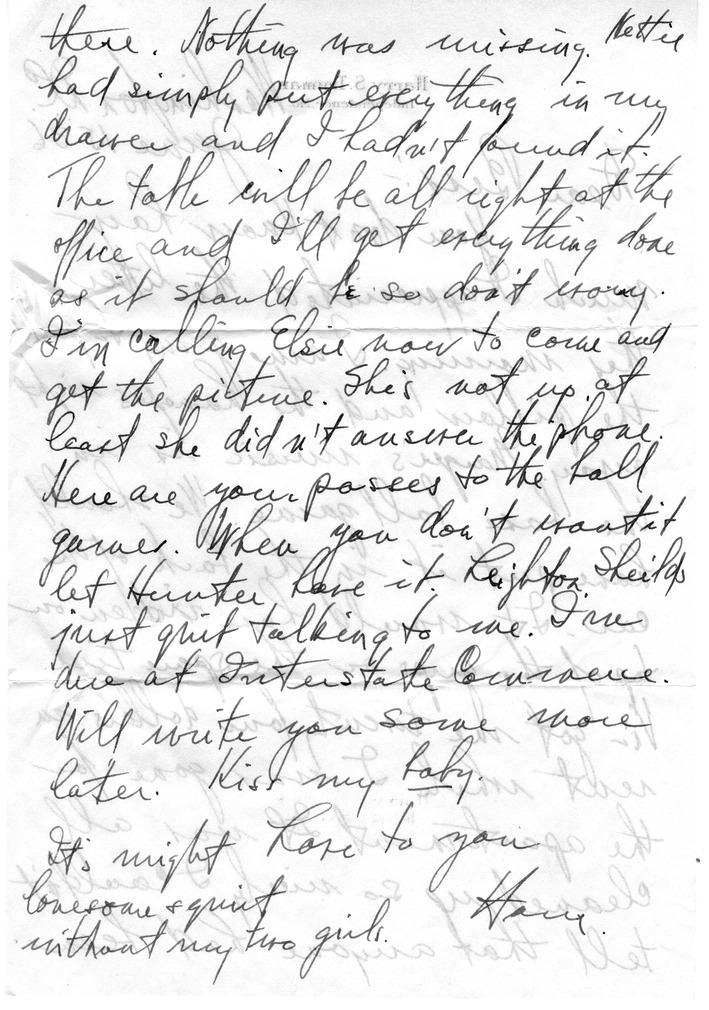 there. Nothing was missing. Nettie
had simply put everything in my
drawer and I hadn't found it.
The table will be all right at the
office and I'll get everything done
as it should be so don't worry.
I'm calling Elsie now to come and
get the picture. She's not up, at
least she didn't answer the phone.
Here are your passes to the ball
games. When you don't want it
let Hunter have it. Leighton Shields
just quit talking to me. I'm
due at Interstate Commerce.
Will write you some more
later. Kiss my baby.
Love to you
Harry.
It's might
lonesome & quiet
without my two girls.
Harry S. Truman